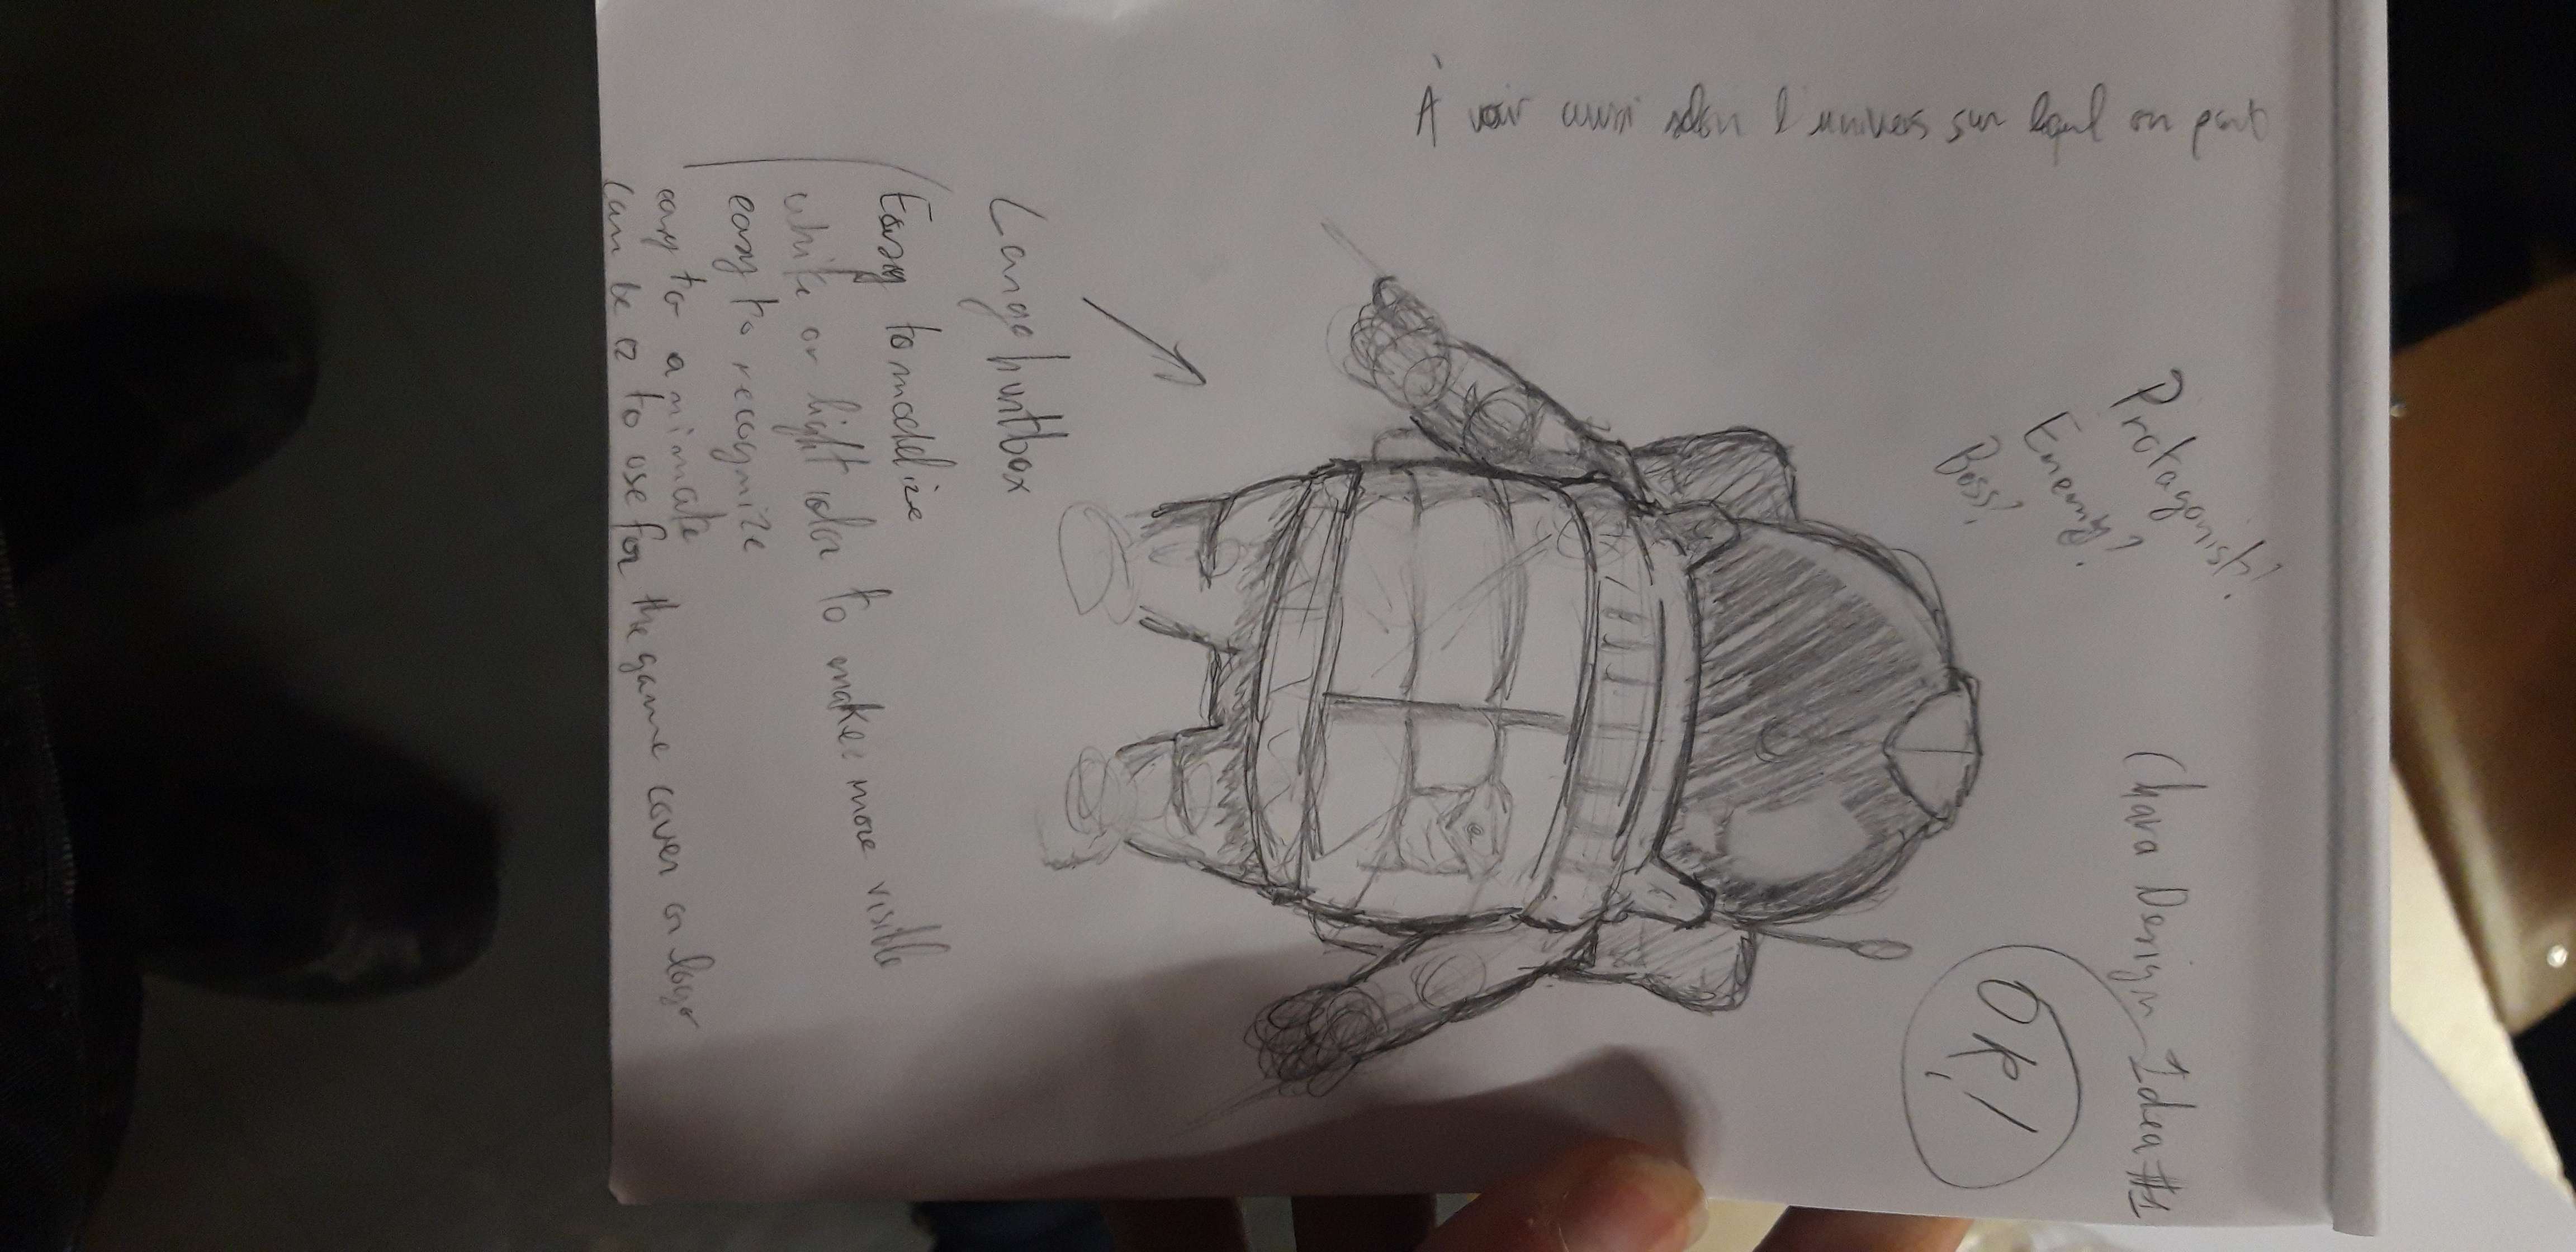 Chara Design Idea #1
OK!
Protagonist?
Enemy?
Boss?
À voir aussi selon l'univers sur lequel on part
Large hurtbox
Easy to modelize
white or light color to makes more visible
easy to recognize
easy to animate
can be ez to use for the game cover or logo